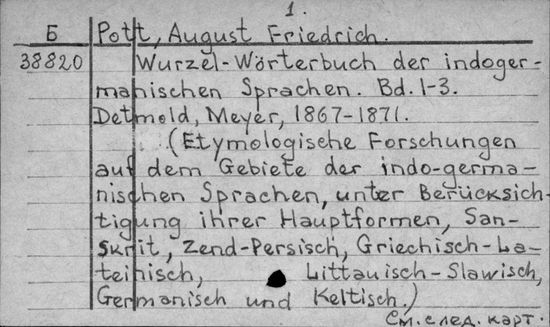 1.
Б Pott, August Friedrich.
38820 Wurzel-Wörterbuch der indoger-
manischen Sprachen. Bd. 1-3.
Detmold, Meyer, 1867-1871.
(Etymologische Forschungen
auf dem Gebiete der indo-germa-
nischen Sprachen, unter Berücksich-
tigung ihrer Hauptformen, San-
skrit, Zend-Persisch, Griechisch-La-
teinisch, Littauisch-Slawisch,
Germanisch und Keltisch.)
См. след. карт.